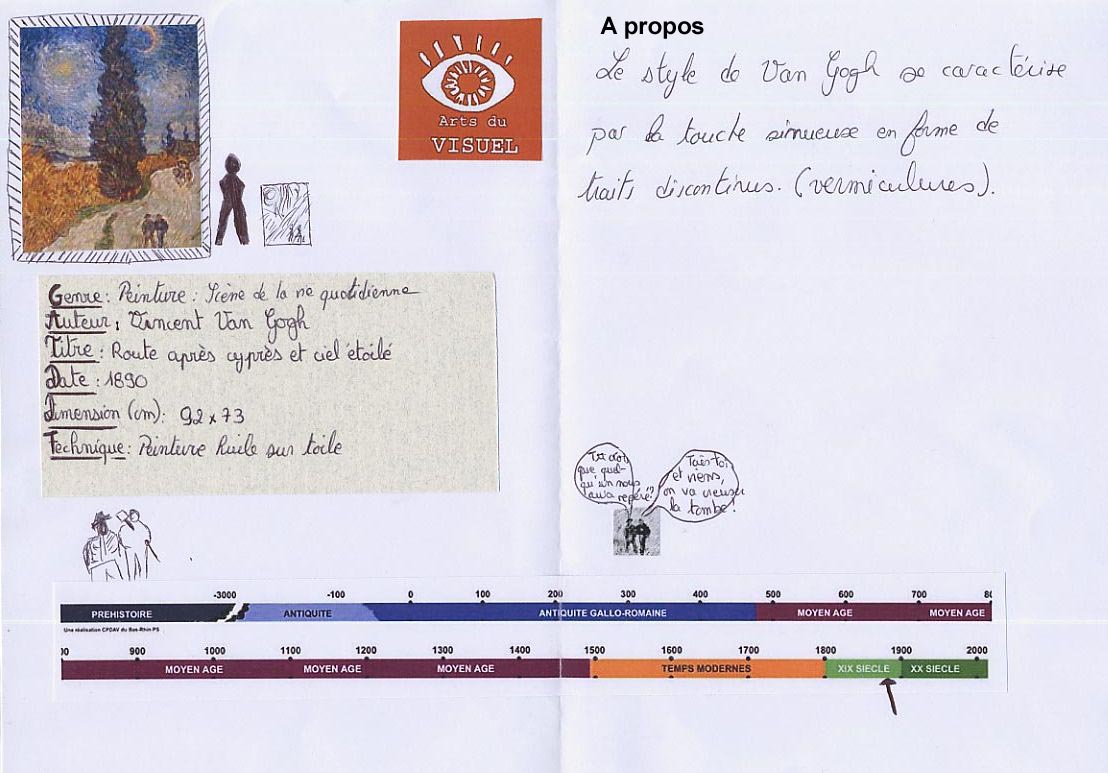 Arts du
VISUEL
Genre : Peinture : Scène de la vie quotidienne
Auteur : Vincent Van Gogh
Titre : Route après cyprès et ciel étoilé
Date : 1890
Dimension (cm) : 92 x 73
Technique : Peinture huile sur toile
A propos
Le style de Van Gogh se caractérise
par la touche sinueuse en forme de
traits discontinus. (vermiculures).
que quel-
qu'un nous
aura repéré ?
Tais-toi
et viens,
on va creuser
la tombe !
-3000 -100 0 100 200 300 400 500 600 700
PREHISTOIRE ANTIQUITE ANTIQUITE GALLO-ROMAINE MOYEN AGE MOYEN AGE
Une réalisation CPDAV du Bas-Rhin PS
900 1000 1100 1200 1300 1400 1500 1600 1700 1800 1900 2000
MOYEN AGE MOYEN AGE MOYEN AGE TEMPS MODERNES XIX SIECLE XX SIECLE